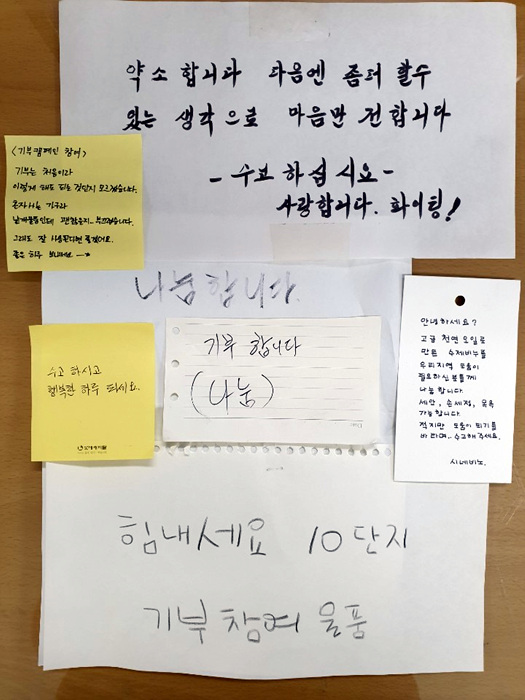 약소 합니다 다음엔 좀더 할수
있는 생각으로 마음만 전합니다
- 수고 하십시요 -
사랑합니다. 화이팅!
<기부캠페인 참여>
기부는 처음이라
이렇게 해도 되는 건지 모르겠습니다.
혼자사는 가구라
낱개물품인데 괜찮을지
그래도 잘 사용된다면 좋겠어요.
좋은 하루 보내세요
나눔합니다.
수고 하시고
행복한 하루 되세요.
기부 합니다
(나눔)
안녕하세요?
고급 천연 오일로
만든 수제비누를
우리지역 도움이
필요하신 분들께
나눔 합니다.
세안, 손세정, 목욕
가능합니다.
적지만 도움이 되기를
바라며... 수고해주세요.
힘내세요 10단지
기부참여 물품